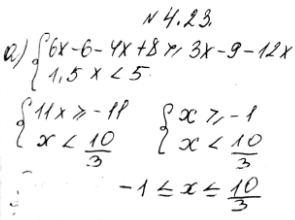 № 4.23.
а) { 6x-6-4x+8 ≥ 3x-9-12x
1,5x < 5.
{ 11x ≥ -11 { x ≥ -1
x < 10/3 x < 10/3
-1 ≤ x ≤ 10/3